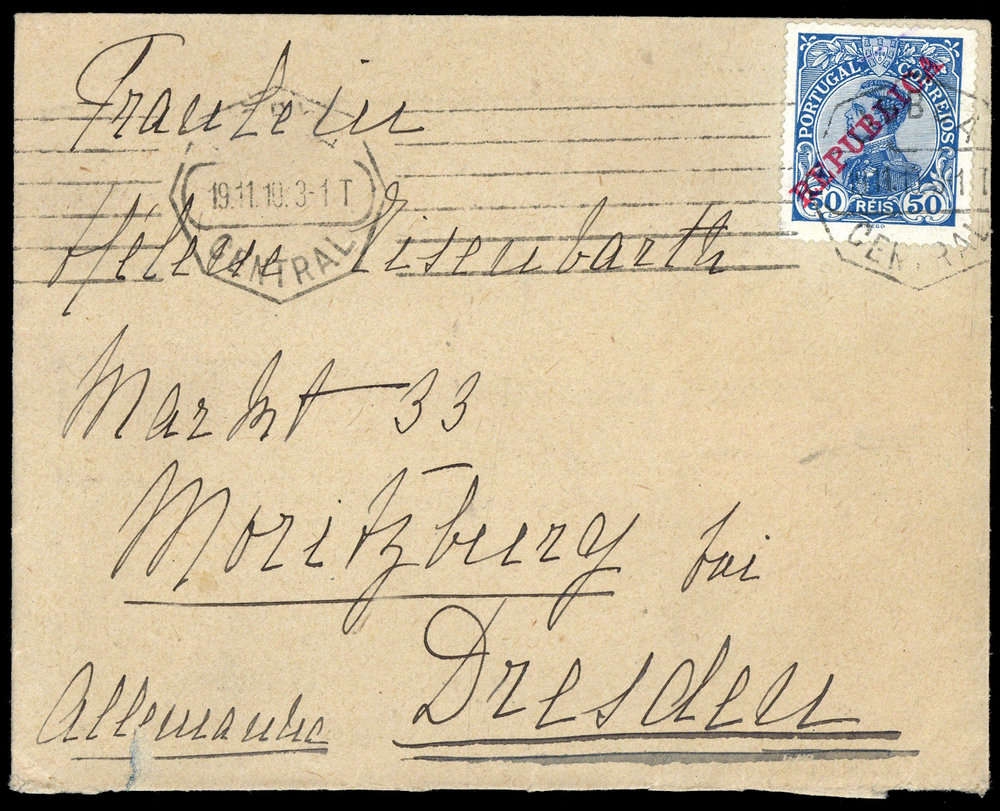 Fräulein
Helene Eisenbarth
Markt 33
Moritzburg bei
Dresden
Allemanha
PORTUGAL CORREIOS
REPUBLICA
50 RÉIS 50
19.11.10. 3-1 T
CENTRAL
CENTRAL